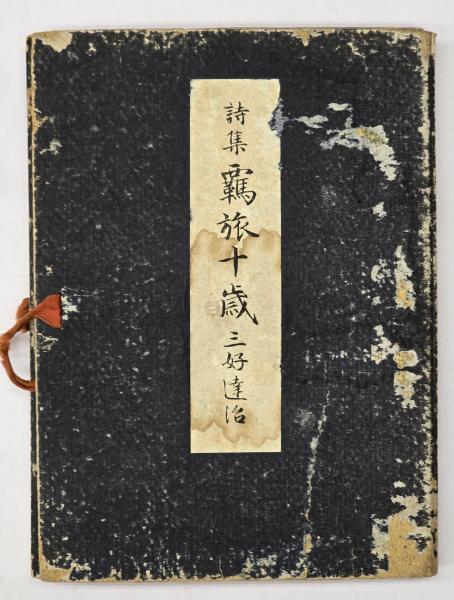 詩集 羈旅十歳 三好達治